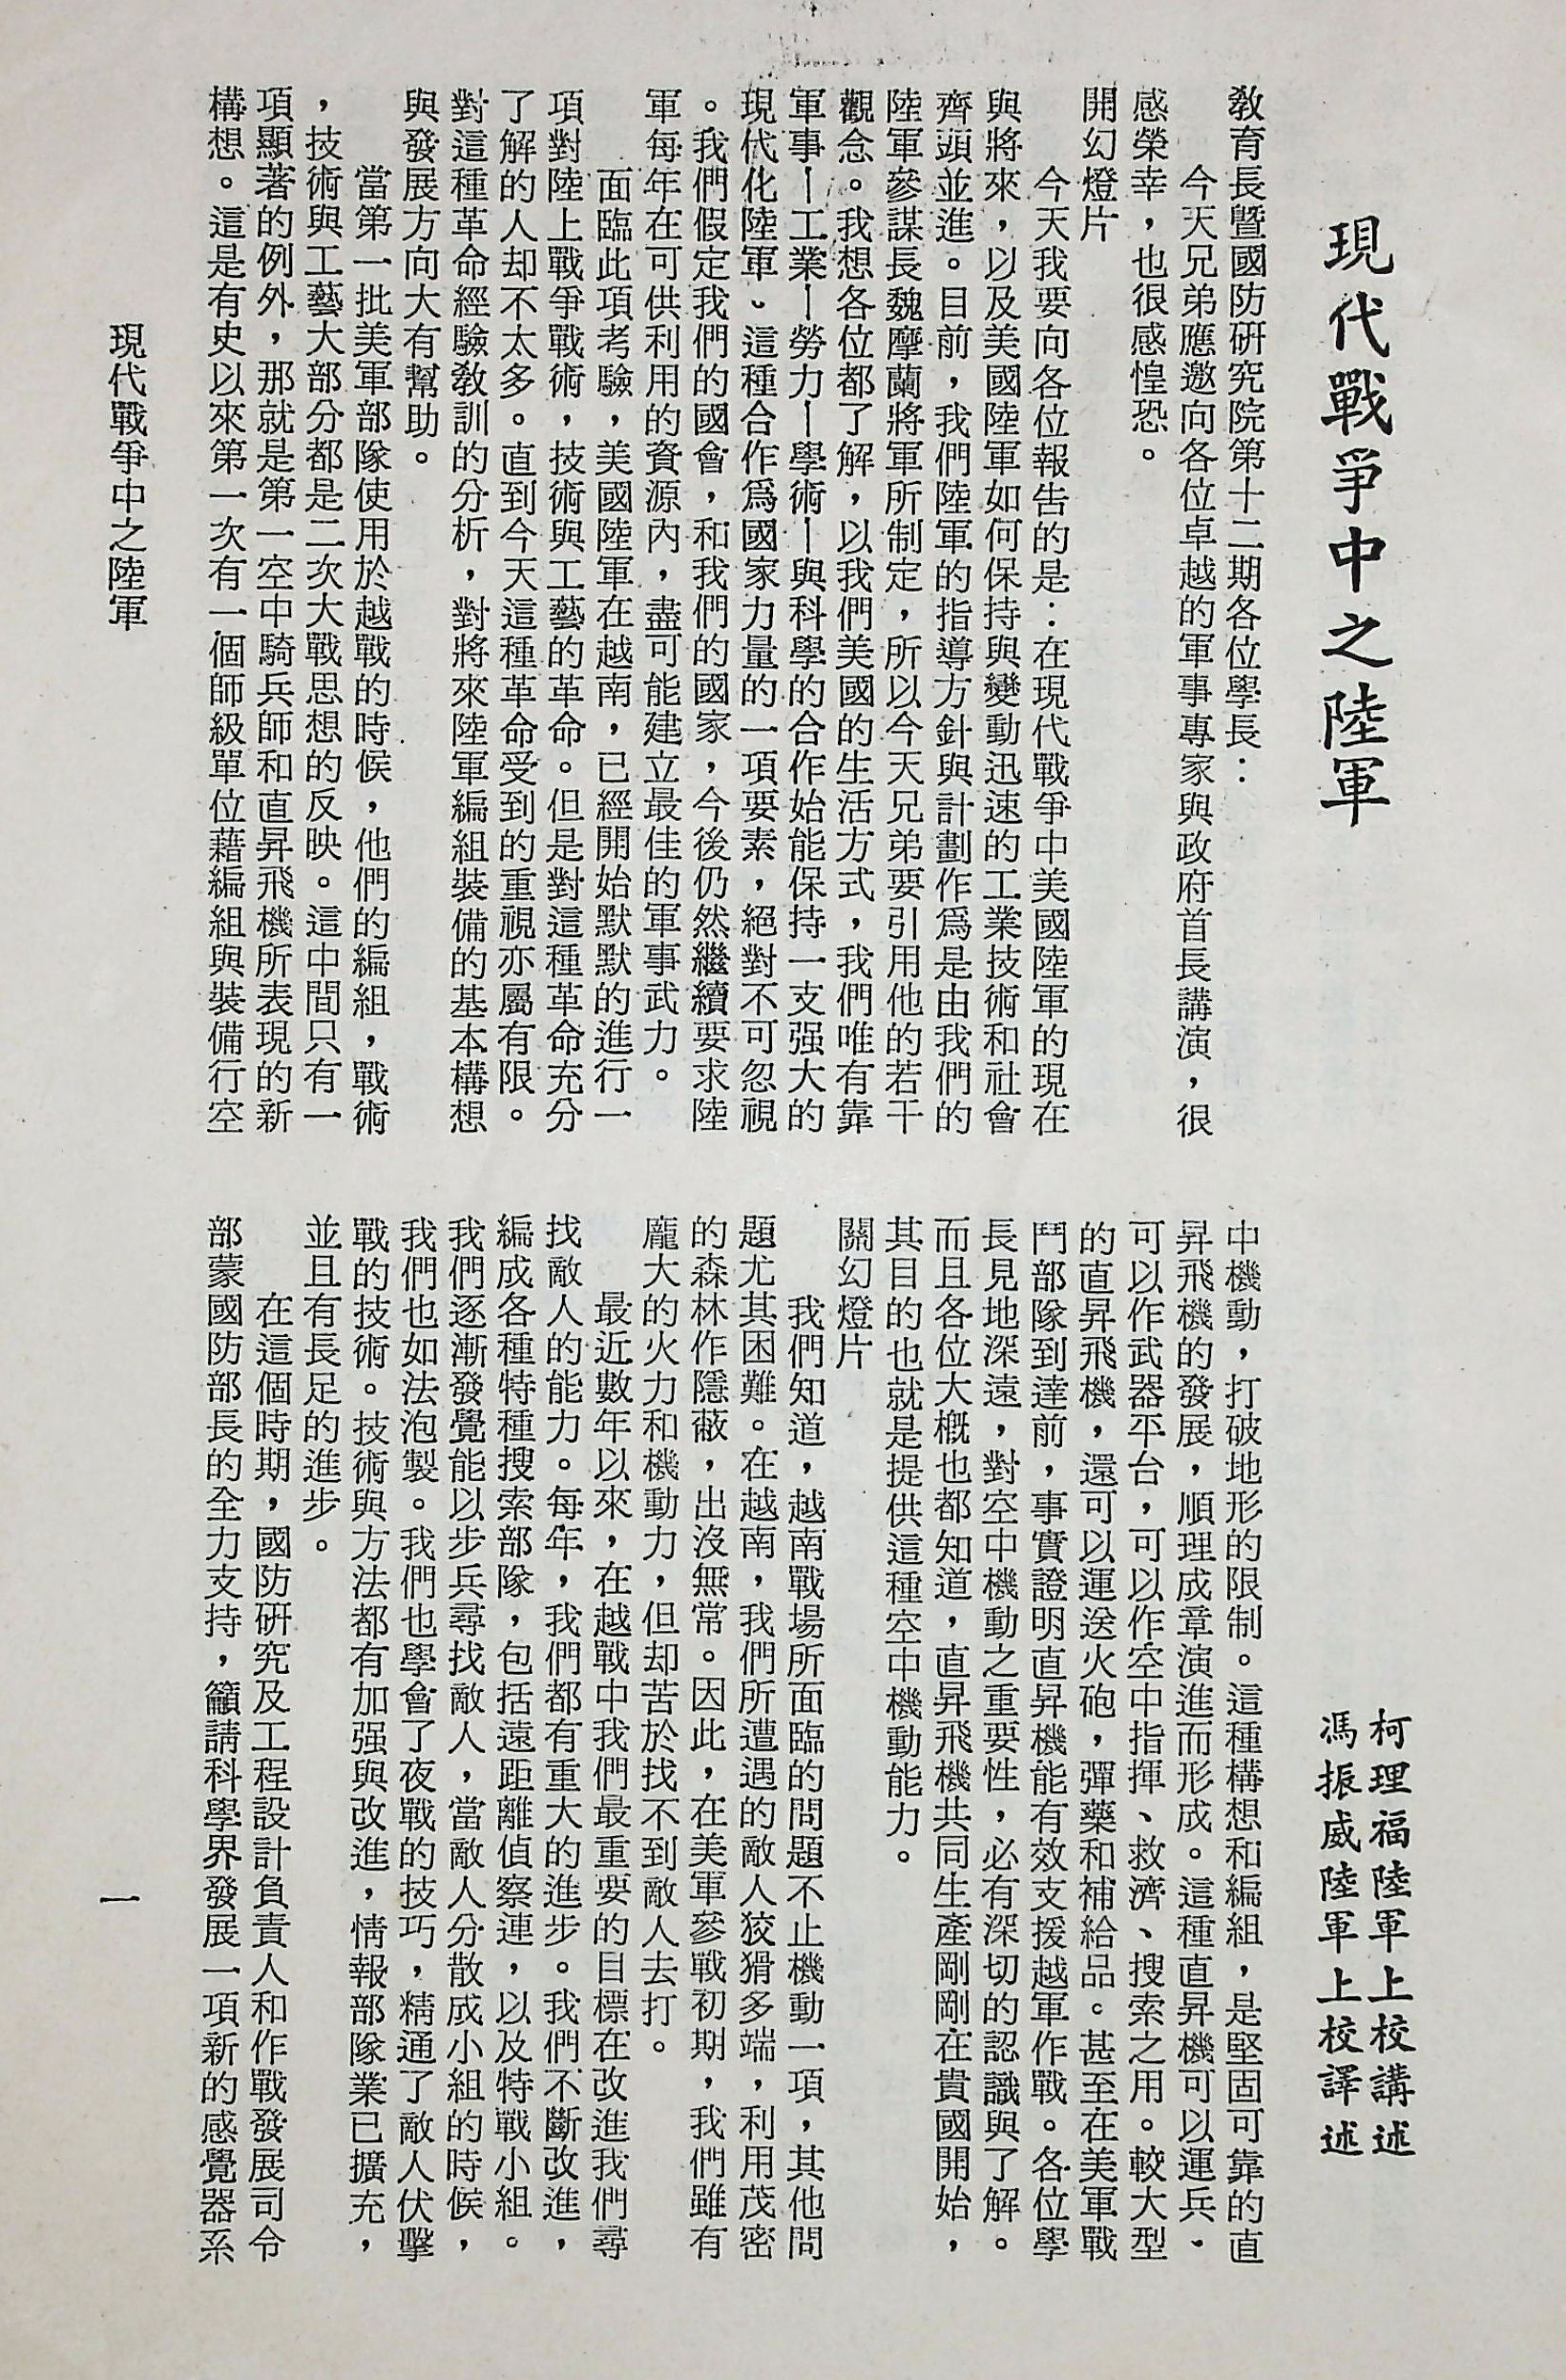 現代戰爭中之陸軍
柯理福陸軍上校講述
馮振威陸軍上校譯述
教育長暨國防研究院第十二期各位學長：
今天兄弟應邀向各位卓越的軍事專家與政府首長講演，很
感榮幸，也很感惶恐。
開幻燈片
今天我要向各位報告的是：在現代戰爭中美國陸軍的現在
與將來，以及美國陸軍如何保持與變動迅速的工業技術和社會
齊頭並進。目前，我們陸軍的指導方針與計劃作爲是由我們的
陸軍參謀長魏摩蘭將軍所制定，所以今天兄弟要引用他的若干
觀念。我想各位都了解，以我們美國的生活方式，我們唯有靠
軍事—工業—勞力—學術—與科學的合作始能保持一支强大的
現代化陸軍、這種合作爲國家力量的一項要素，絕對不可忽視
。我們假定我們的國會，和我們的國家，今後仍然繼續要求陸
軍每年在可供利用的資源內，盡可能建立最佳的軍事武力。
面臨此項考驗，美國陸軍在越南，已經開始默默的進行一
項對陸上戰爭戰術，技術與工藝的革命。但是對這種革命充分
了解的人却不太多。直到今天這種革命受到的重視亦屬有限。
對這種革命經驗教訓的分析，對將來陸軍編組裝備的基本構想
與發展方向大有幫助。
當第一批美軍部隊使用於越戰的時候，他們的編組，戰術
，技術與工藝大部分都是二次大戰思想的反映。這中間只有一
項顯著的例外，那就是第一空中騎兵師和直昇飛機所表現的新
構想。這是有史以來第一次有一個師級單位藉編組與裝備行空
中機動，打破地形的限制。這種構想和編組，是堅固可靠的直
昇飛機的發展，順理成章演進而形成。這種直昇機可以運兵、
可以作武器平台，可以作空中指揮、救濟、搜索之用。較大型
的直昇飛機，還可以運送火砲，彈藥和補給品。甚至在美軍戰
鬥部隊到達前，事實證明直昇機能有效支援越軍作戰。各位學
長見地深遠，對空中機動之重要性，必有深切的認識與了解。
而且各位大概也都知道，直昇飛機共同生產剛剛在貴國開始，
其目的也就是提供這種空中機動能力。
關幻燈片
我們知道，越南戰場所面臨的問題不止機動一項，其他問
題尤其困難。在越南，我們所遭遇的敵人狡猾多端，利用茂密
的森林作隱蔽，出沒無常。因此，在美軍參戰初期，我們雖有
龐大的火力和機動力，但却苦於找不到敵人去打。
最近數年以來，在越戰中我們最重要的目標在改進我們尋
找敵人的能力。每年，我們都有重大的進步。我們不斷改進，
編成各種特種搜索部隊，包括遠距離偵察連，以及特戰小組。
我們逐漸發覺能以步兵尋找敵人，當敵人分散成小組的時候，
我們也如法泡製。我們也學會了夜戰的技巧，精通了敵人伏擊
戰的技術。技術與方法都有加强與改進，情報部隊業已擴充，
並且有長足的進步。
在這個時期，國防研究及工程設計負責人和作戰發展司令
部蒙國防部長的全力支持，籲請科學界發展一項新的感覺器系
現代戰爭中之陸軍
一